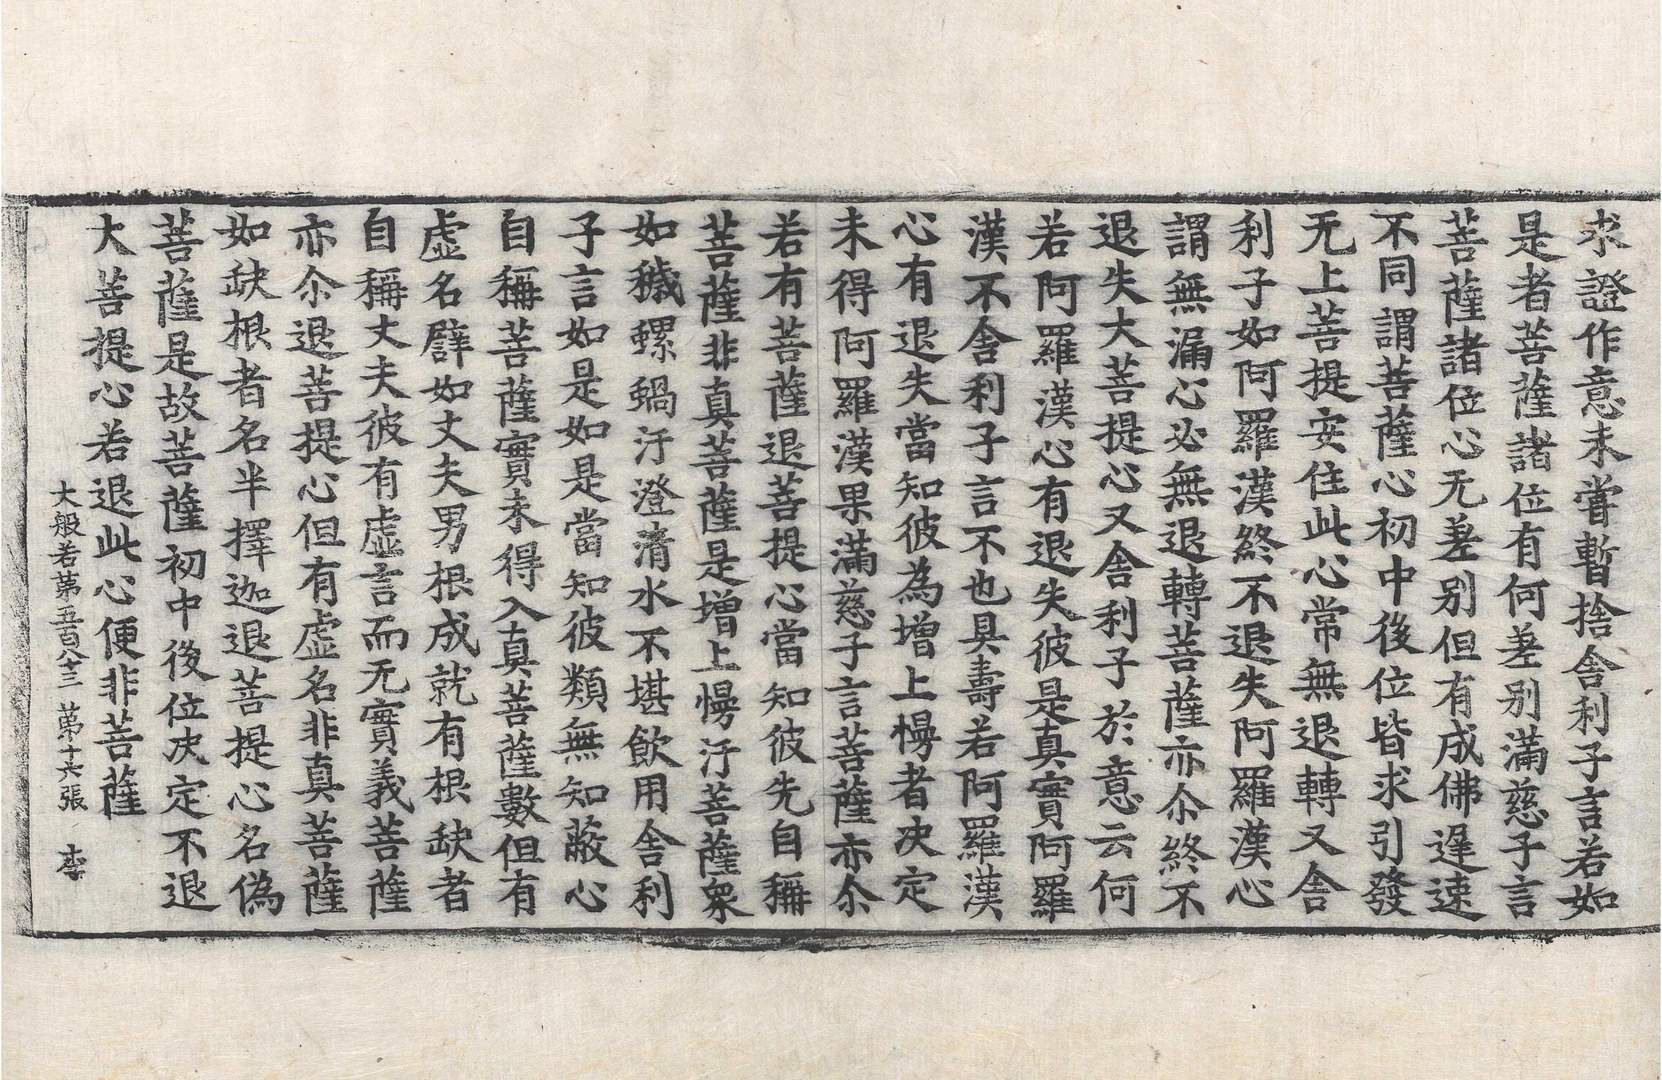 求證作意未嘗暫捨舍利子言若如
是者菩薩諸位有何差别滿慈子言
菩薩諸位心无差别但有成佛遟速
不同謂菩薩心初中後位皆求引發
无上菩提安住此心常無退轉又舍
利子如阿羅漢終不退失阿羅漢心
謂無漏心必無退轉菩薩亦尒終不
退失大菩提心又舍利子於意云何
若阿羅漢心有退失彼是真實阿羅
漢不舍利子言不也具壽若阿羅漢
心有退失當知彼為增上慢者決定
未得阿羅漢果滿慈子言菩薩亦尒
若有菩薩退菩提心當知彼先自稱
菩薩非真菩薩是增上慢汙菩薩衆
如穢螺蝸汙澄清水不堪飲用舍利
子言如是如是當知彼類無知蔽心
自稱菩薩實未得入真菩薩數但有
虛名譬如丈夫男根成就有根缺者
自稱丈夫彼有虛言而无實義菩薩
亦尒退菩提心但有虛名非真菩薩
如缺根者名半擇迦退菩提心名偽
菩薩是故菩薩初中後位決定不退
大菩提心若退此心便非菩薩
大般若第五百八十三 第十六張 李